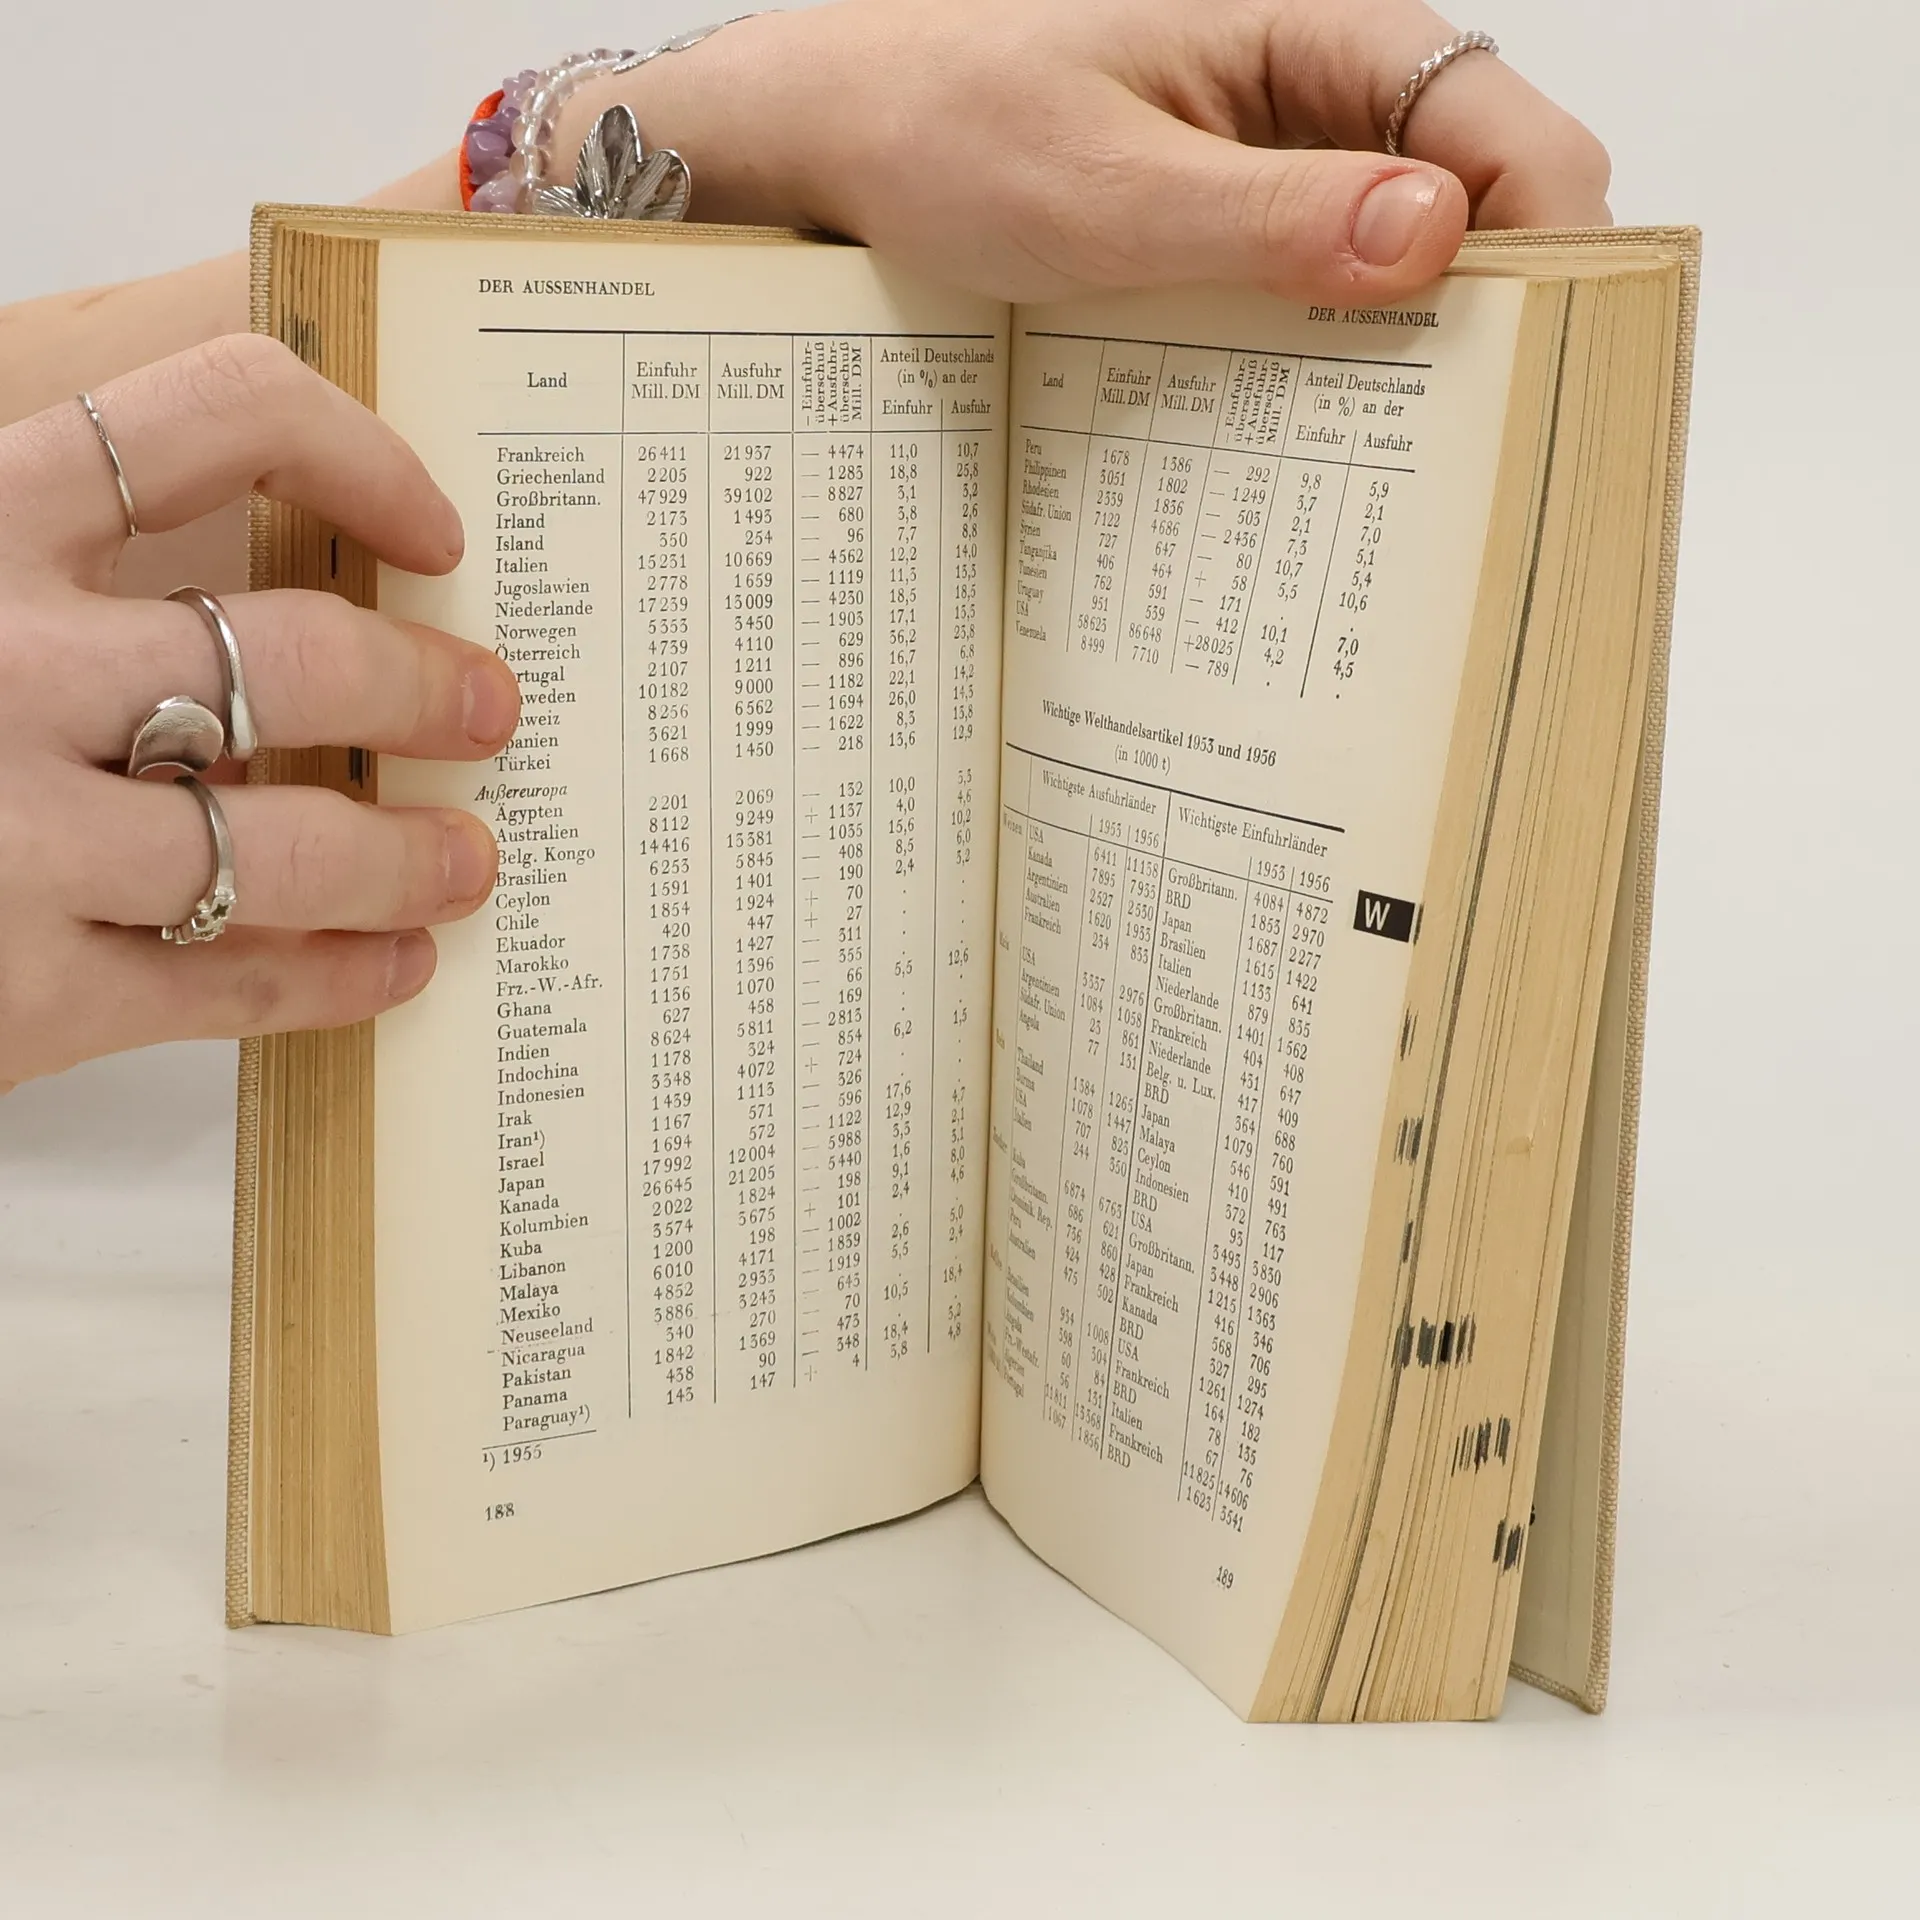 DER AUSSENHANDEL
Land Einfuhr Mill. DM Ausfuhr Mill. DM — Einfuhr-überschuß + Ausfuhr-überschuß Mill. DM Anteil Deutschlands (in %) an der Einfuhr Ausfuhr
Frankreich 26411 21937 — 4474 11,0 10,7
Griechenland 2205 922 — 1283 18,8 25,8
Großbritann. 47929 39102 — 8827 3,1 3,2
Irland 2173 1493 — 680 3,8 2,6
Island 350 254 — 96 7,7 8,8
Italien 15231 10669 — 4562 12,2 14,0
Jugoslawien 2778 1659 — 1119 11,3 13,3
Niederlande 17239 13009 — 4230 18,5 18,5
Norwegen 5353 3450 — 1903 17,1 15,5
Österreich 4739 4110 — 629 36,2 23,8
rtugal 2107 1211 — 896 16,7 6,8
weden 10182 9000 — 1182 22,1 14,2
weiz 8256 6562 — 1694 26,0 14,5
panien 3621 1999 — 1622 8,3 13,8
Türkei 1668 1450 — 218 13,6 12,9
Außereuropa
Ägypten 2201 2069 — 132 10,0 5,3
Australien 8112 9249 + 1137 4,0 4,6
Belg. Kongo 14416 13381 — 1035 15,6 10,2
Brasilien 6253 5845 — 408 8,5 6,0
Ceylon 1591 1401 — 190 2,4 3,2
Chile 1854 1924 + 70 . .
Ekuador 420 447 + 27 . .
Marokko 1738 1427 — 311 . .
Frz.-W.-Afr. 1751 1396 — 355
Ghana 1136 1070 — 66 5,5 12,6
Guatemala 627 458 — 169 . .
Indien 8624 5811 — 2813
Indochina 1178 324 — 854 6,2 1,5
Indonesien 3348 4072 + 724 . .
Irak 1439 1113 — 326 . .
Iran¹) 1167 571 — 596 17,6 4,7
Israel 1694 572 — 1122 12,9 2,1
Japan 17992 12004 — 5988 3,3 3,1
Kanada 26645 21205 — 5440 1,6 8,0
Kolumbien 2022 1824 — 198 9,1 4,6
Kuba 3574 3675 + 101 2,4 .
Libanon 1200 198 — 1002 . 3,0
Malaya 6010 4171 — 1839 2,6 2,4
Mexiko 4852 2933 — 1919 5,5 .
Neuseeland 3886 3243 — 643 .
Nicaragua 340 270 — 70 10,5 18,4
Pakistan 1842 1369 — 473 .
Panama 438 90 — 348 18,4 5,2
Paraguay¹) 143 147 + 4 5,8 4,8
¹) 1955
188
DER AUSSENHANDEL
Land Einfuhr Mill. DM Ausfuhr Mill. DM — Einfuhr-überschuß + Ausfuhr-überschuß Mill. DM Anteil Deutschlands (in %) an der Einfuhr Ausfuhr
Peru 1678 1386 — 292 9,8 5,9
Philippinen 3051 1802 — 1249 3,7 2,1
Rhodesien 2339 1836 — 503 2,1 7,0
Südafr. Union 7122 4686 — 2436 7,3 5,1
Syrien 727 647 — 80 10,7 5,4
Tanganjika 406 464 + 58 5,5 10,6
Tunesien 762 591 — 171 . .
Uruguay 951 539 — 412 10,1 7,0
USA 58623 86648 +28025 4,2 4,5
Venezuela 8499 7710 — 789 . .
Wichtige Welthandelsartikel 1953 und 1956
(in 1000 t)
Wichtigste Ausfuhrländer Wichtigste Einfuhrländer
1953 1956 1953 1956
Weizen USA 6411 11158 Großbritann. 4084 4872
Kanada 7895 7933 BRD 1853 2970
Argentinien 2527 2530 Japan 1687 2277
Australien 1620 1933 Brasilien 1615 1422
Frankreich 234 833 Italien 1133 641
Mais USA 3337 2976 Niederlande 879 835
Argentinien 1084 1058 Großbritann. 1401 1562
Südafr. Union 23 861 Frankreich 404 408
Angola 77 131 Niederlande 431 647
Belg. u. Lux. 417 409
BRD 364 688
Reis Thailand 1384 1265 Japan 1079 760
Burma 1078 1447 Malaya 546 591
USA 707 823 Ceylon 410 491
Italien 244 350 Indonesien 372 763
BRD 93 117
Zucker Kuba 6874 6763 USA 3493 3830
Großbritann. 686 621 Großbritann. 3448 2906
Dominik. Rep. 736 860 Japan 1215 1363
Peru 424 428 Frankreich 416 346
Australien 475 502 Kanada 568 706
BRD 327 295
Kaffee Brasilien 934 1008 USA 1261 1274
Kolumbien 398 304 Frankreich 164 182
Angola 60 84 BRD 78 135
Frz.-Westafr. 56 131 Italien 67 76
Algerien 11811 13368 Frankreich 11825 14606
Portugal 1067 1856 BRD 1623 3541
W
189